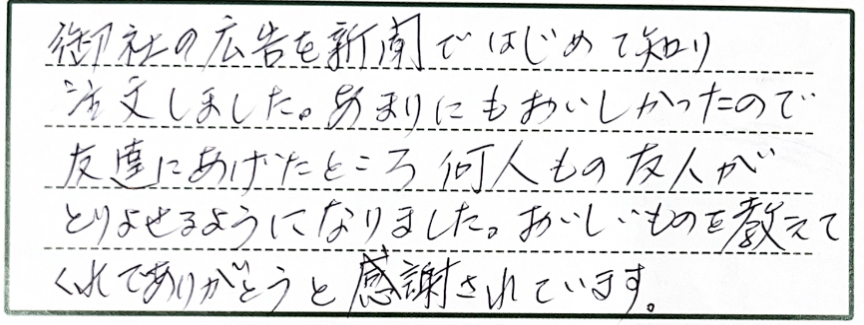 御社の広告を新聞ではじめて知り
注文しました。あまりにもおいしかったので
友達にあげたところ何人もの友人が
とりよせるようになりました。おいしいものを教えて
くれてありがとうと感謝されています。